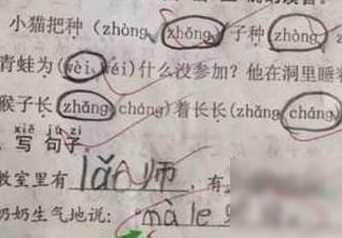 小猫把种（zhòng、zhǒng）子种（zhòng、
青蛙为（wèi、wéi）什么没参加？他在洞里睡
猴子长（zhǎng cháng）着长长（zhǎng cháng）
xiě jù zi
写句子。
教室里有lǎo师，有
奶奶生气地说：mà le